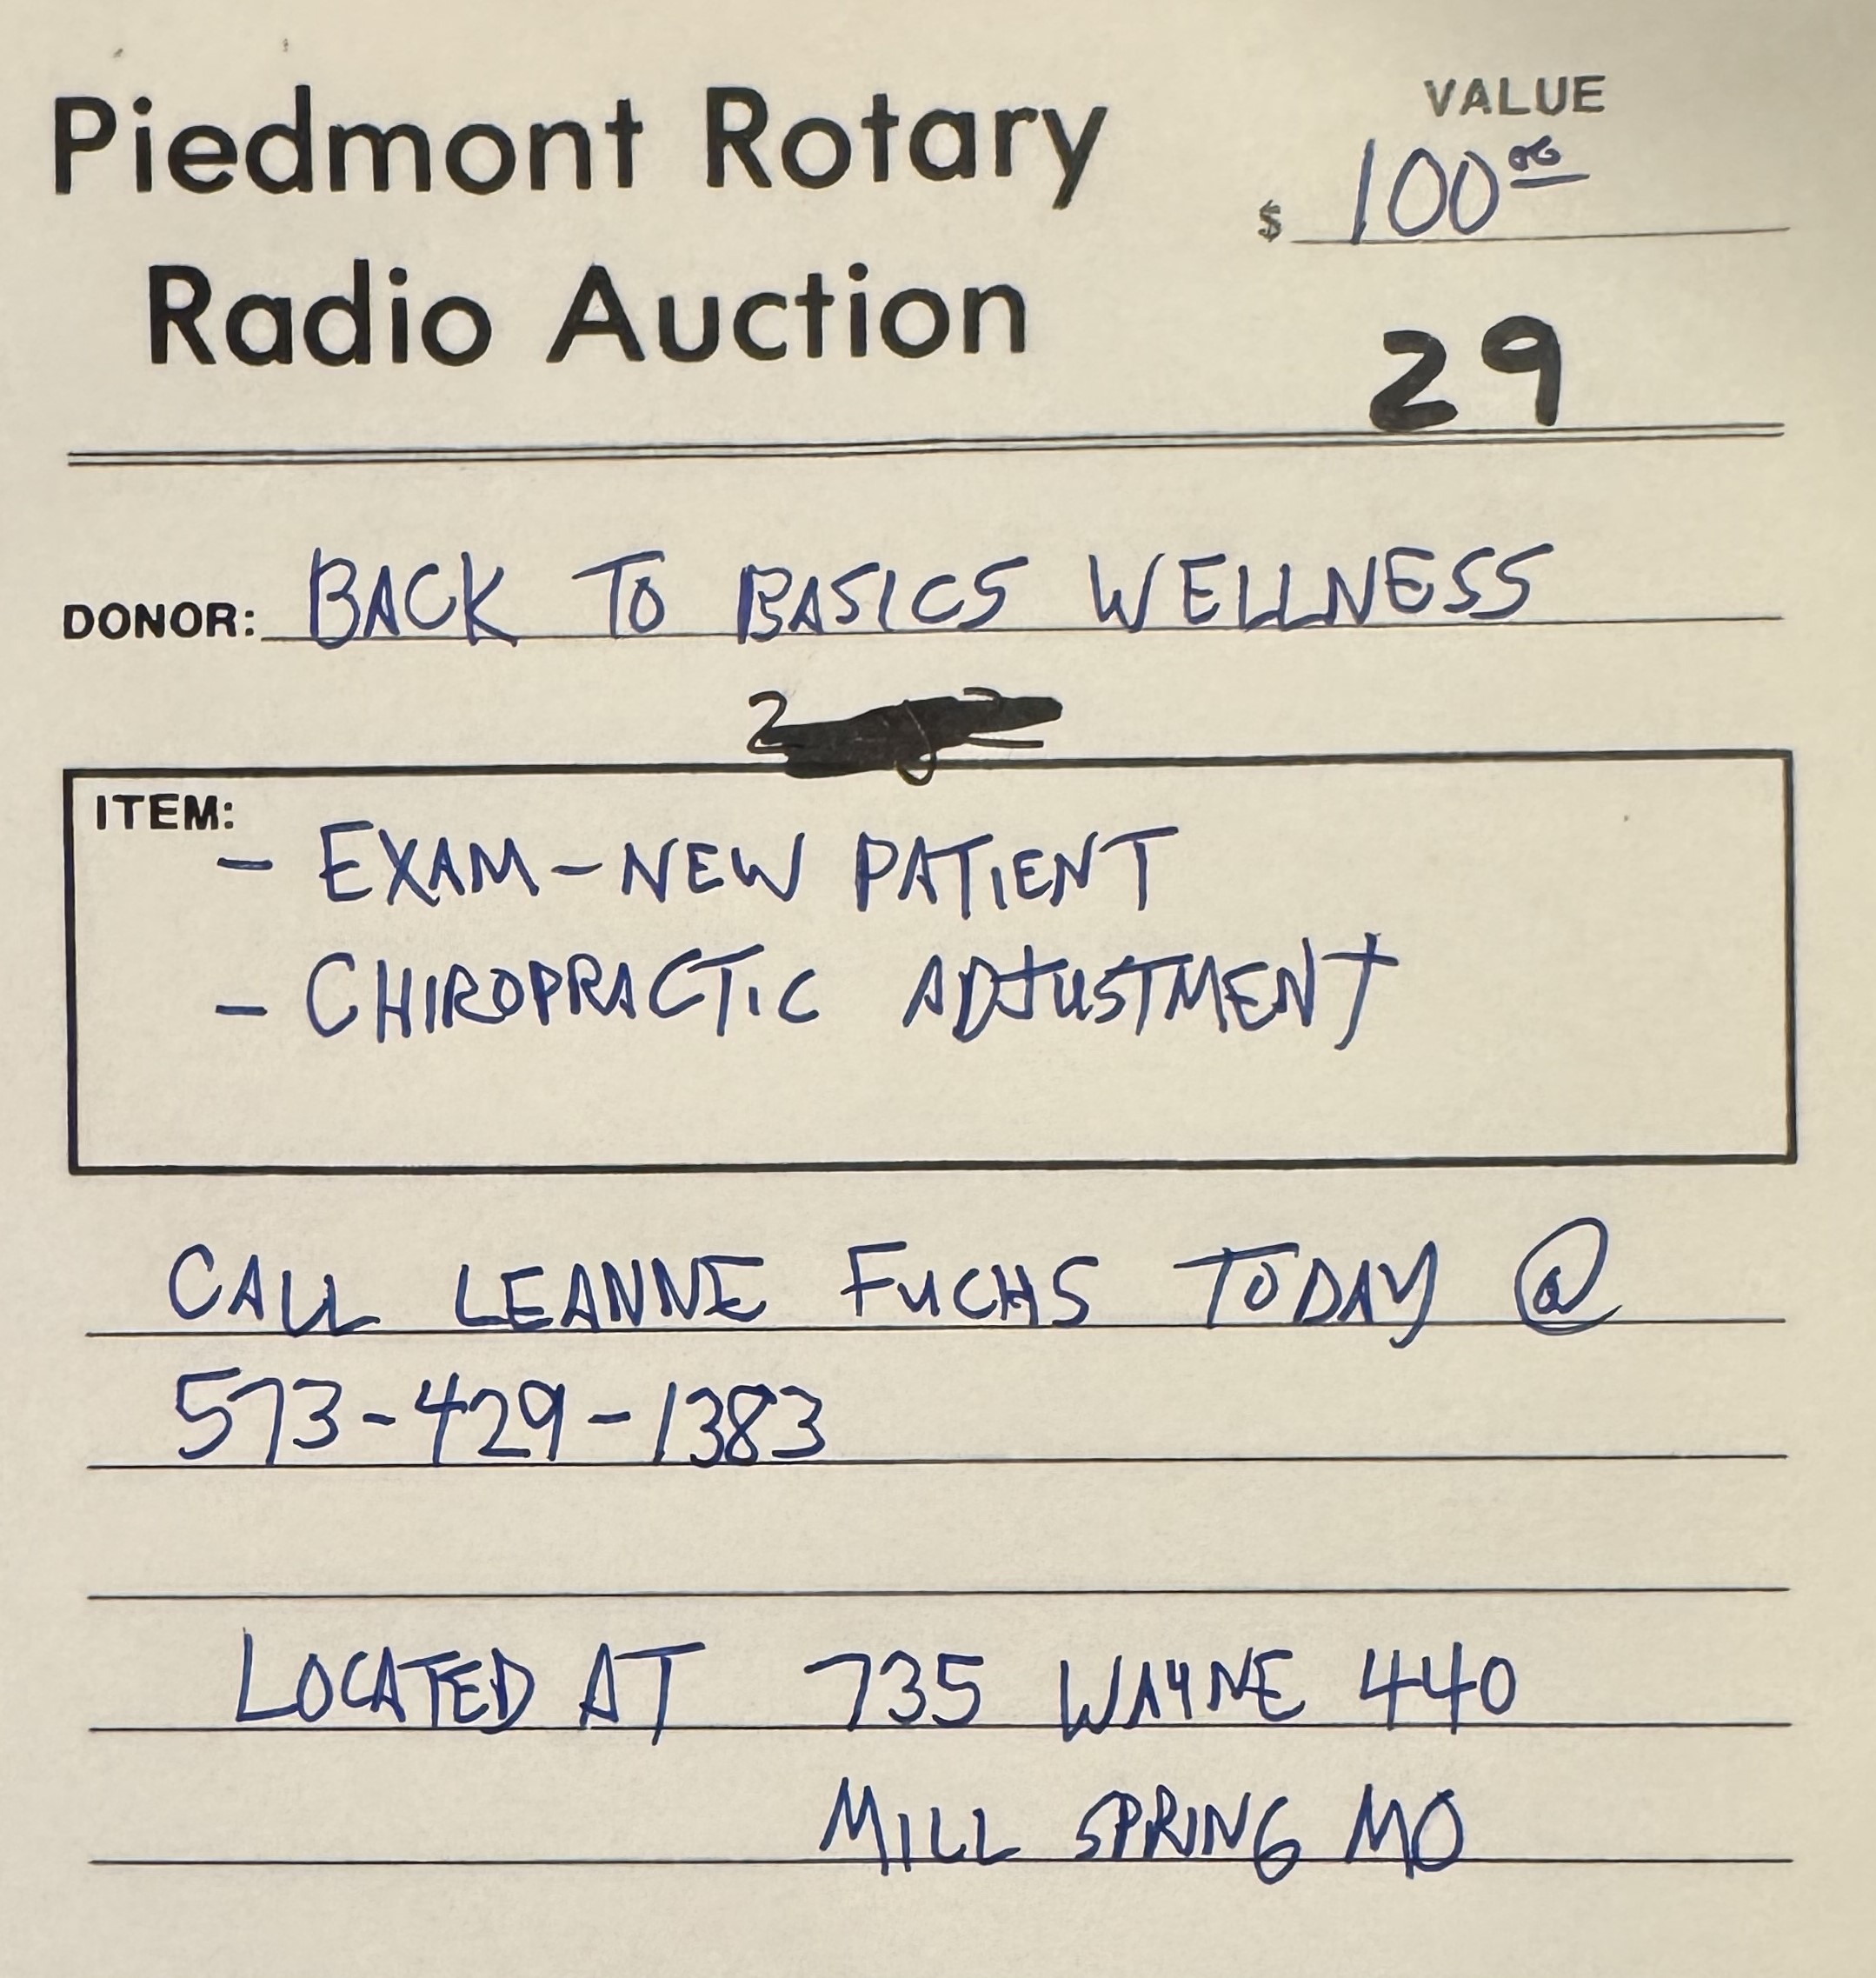 Piedmont Rotary
Radio Auction
VALUE
$ 100.00
29
DONOR: BACK TO BASICS WELLNESS
2
ITEM:
- EXAM - NEW PATIENT
- CHIROPRACTIC ADJUSTMENT
CALL LEANNE FUCHS TODAY @
573-429-1383
LOCATED AT 735 WAYNE 440
MILL SPRING MO